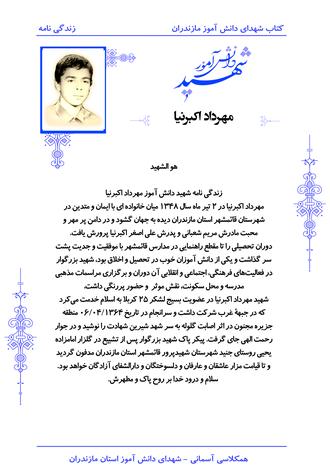 کتاب شهدای دانش آموز مازندران
زندگی نامه
شهید دانش آموز
مهرداد اکبرنیا
هو الشهید
زندگی نامه شهید دانش آموز مهرداد اکبرنیا
مهرداد اکبرنیا در ۲ تیر ماه سال ۱۳۴۸ میان خانواده ای با ایمان و متدین در
شهرستان قائمشهر استان مازندران دیده به جهان گشود و در دامن پر مهر و
محبت مادرش مریم شعبانی و پدرش علی اصغر اکبرنیا پرورش یافت.
دوران تحصیلی را تا مقطع راهنمایی در مدارس قائمشهر با موفقیت و جدیت پشت
سر گذاشت و یکی از دانش آموزان خوب در تحصیل و اخلاق بود. شهید بزرگوار
در فعالیت‌های فرهنگی، اجتماعی و انقلابی آن دوران و برگزاری مراسات مذهبی
مدرسه و محل سکونت، نقش موثر و حضور پررنگی داشت.
شهید مهرداد اکبرنیا در عضویت بسیج لشکر ۲۵ کربلا به اسلام خدمت می‌کرد
که در جبهۀ غرب شرکت داشت و سرانجام در تاریخ ۰۶/۰۴/۱۳۶۴ منطقه
جزیره مجنون در اثر اصابت گلوله به سر شهد شیرین شهادت را نوشید و در جوار
رحمت الهی جای گرفت. پیکر پاک شهید بزرگوار پس از تشییع در گلزار امامزاده
یحیی روستای جنید شهرستان شهیدپرور قائمشهر استان مازندران مدفون گردید
و تا قیامت مزار عاشقان و عارفان و دلسوختگان و دارالشفای آزادگان خواهد بود.
سلام و درود خدا بر روح پاک و مطهرش.
همکلاسی آسمانی - شهدای دانش آموز استان مازندران